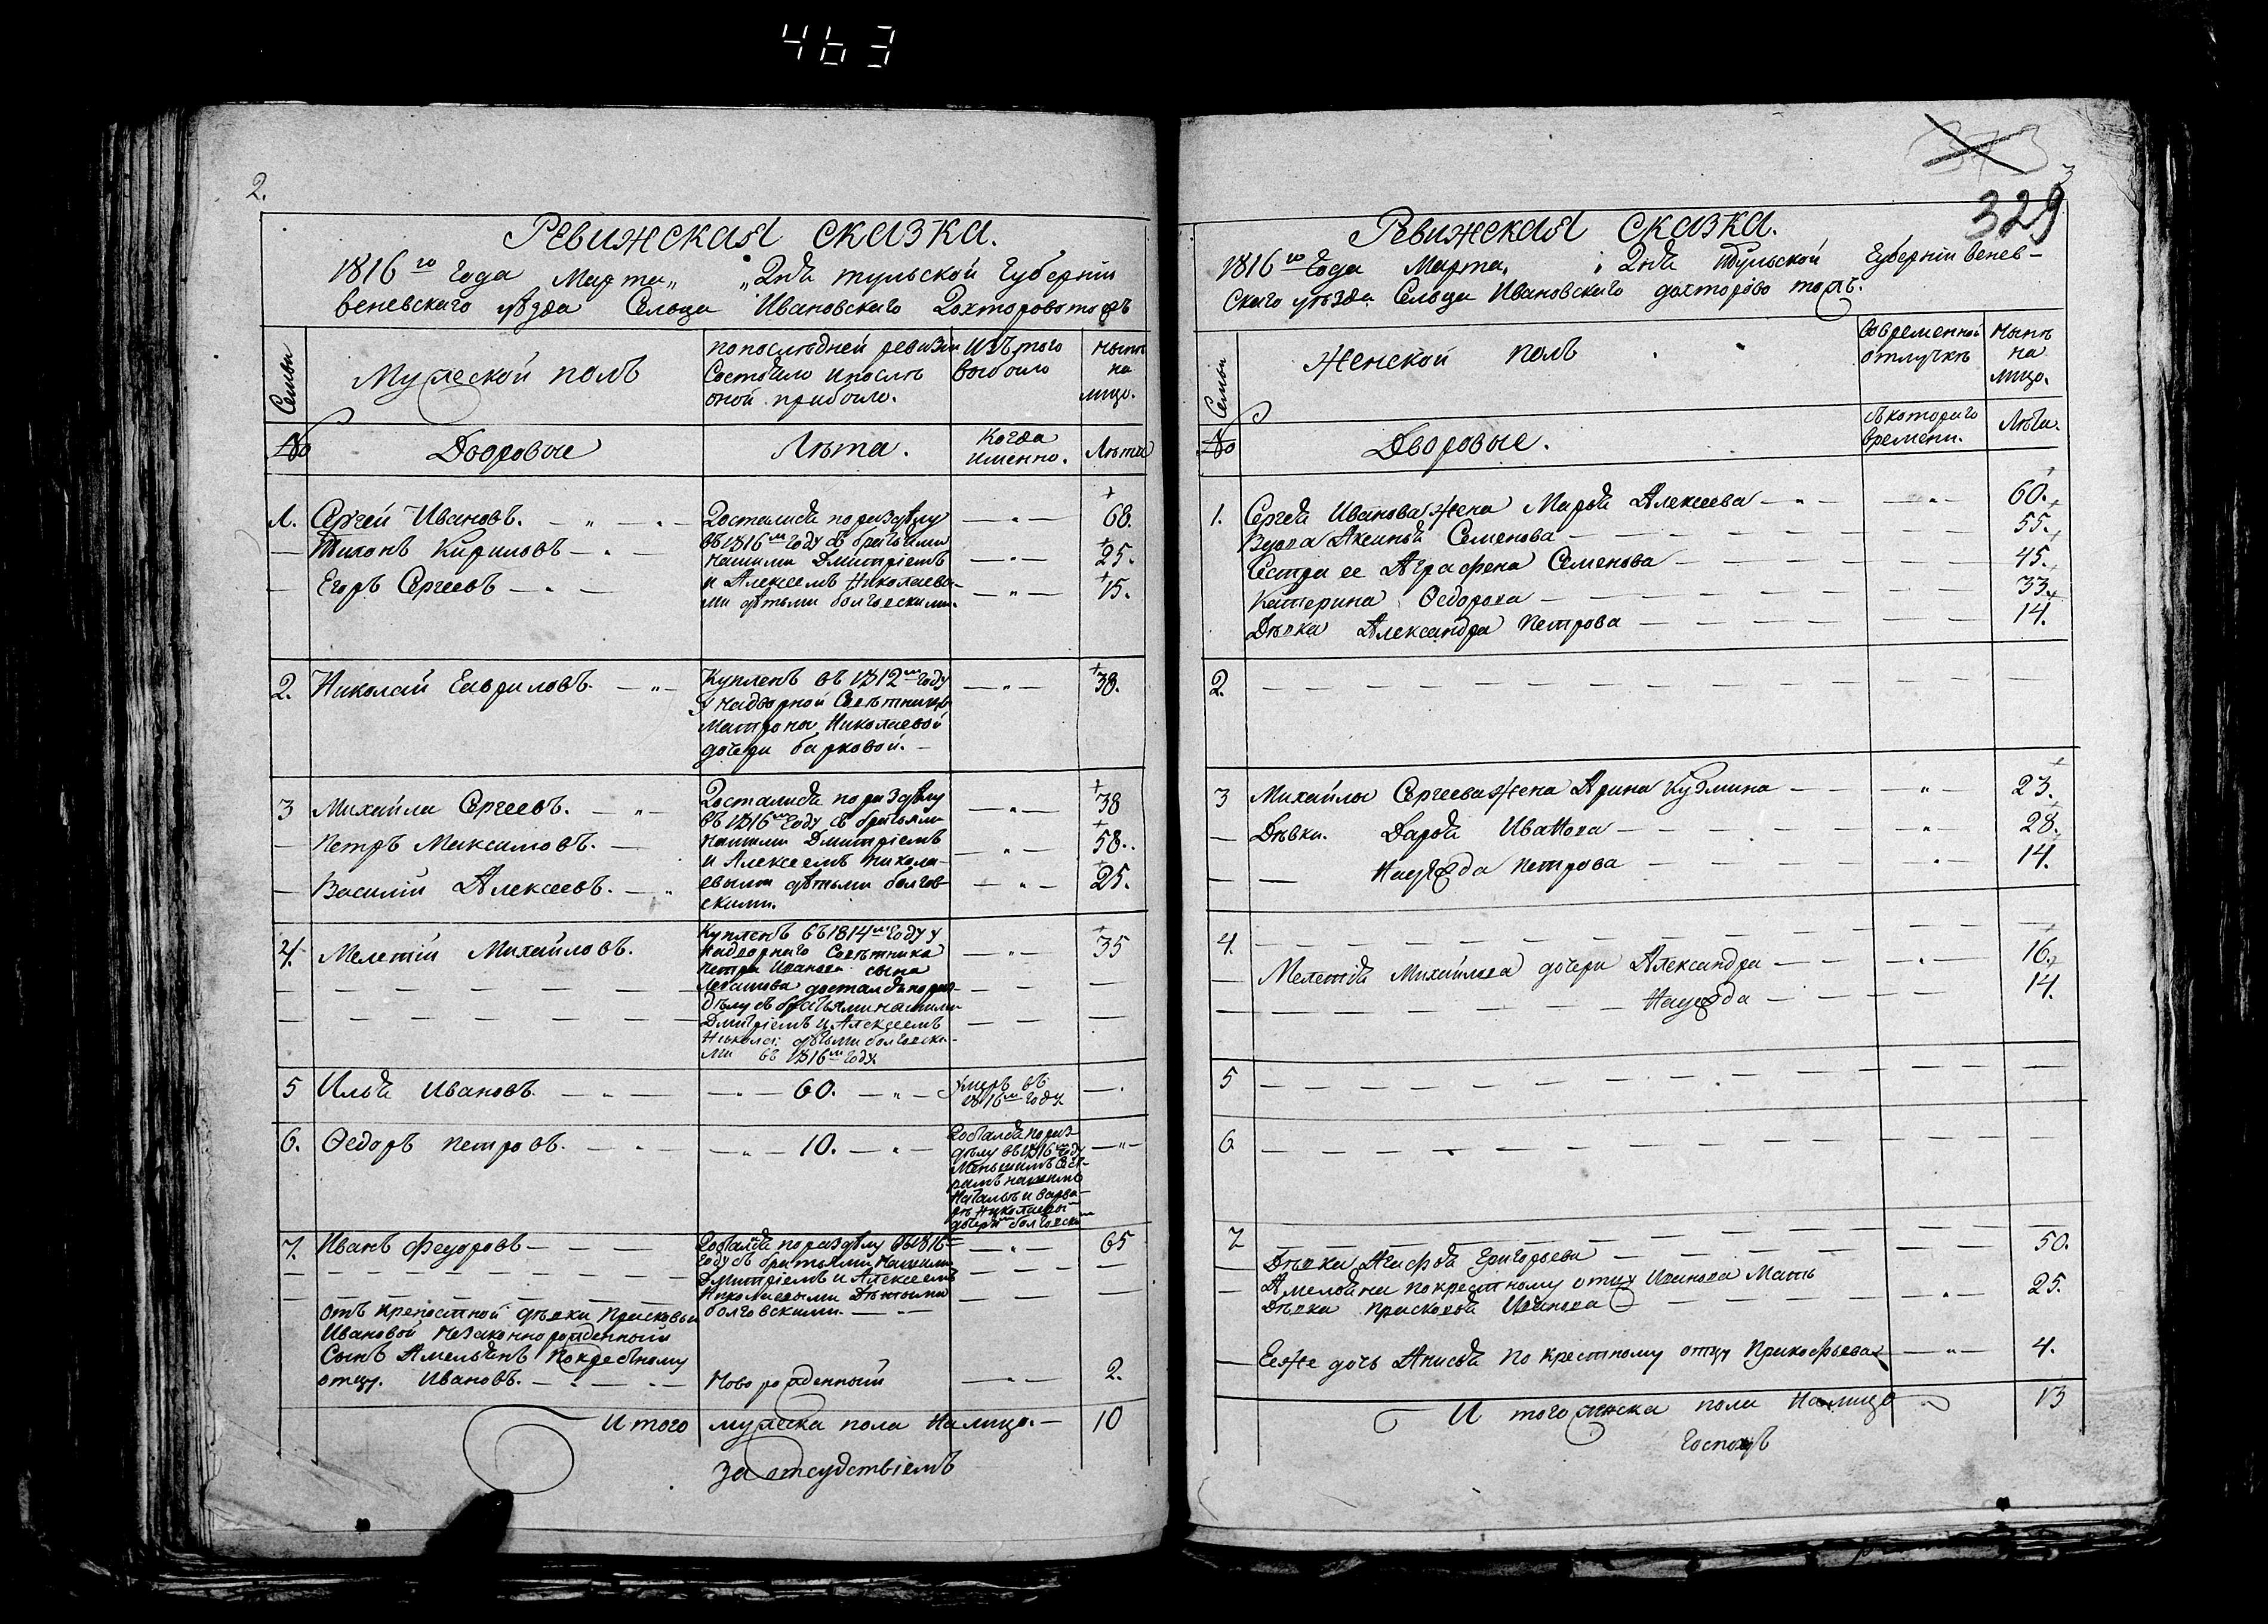 463
2.
Ревижская сказка.
1816го года Марта „ „ дня тульской губерніи
веневскаго уѣзда Сельца Ивановскаго Дохторово тожъ
Семьи
Мужеской полъ
по последней ревизіи
Состояло и послѣ
оной прибыло.
Изъ того
выбыло
ныне
на
лицо.
№
Дворовые
Лѣта.
Когда
именно.
Лѣта
1. Сергей Ивановъ.
Тихонъ Кириловъ
Егоръ Сергеевъ
Достались по разделу
въ 1816м году съ братьями
нашими Дмитріемъ
и Алексеемъ Николаевы-
ми детьми болговскими.
68.
25.
15.
2. Николай Гавриловъ.
Купленъ въ 1812м году
у надворной Советницы
Матрены Николаевой
дочери барковой.
38.
3 Михайла Сергеевъ.
Петръ Максимовъ.
Василій Алексеевъ.
Достались по разделу
въ 1816м году съ братьями
нашими Дмитріемъ
и Алексеемъ Никола-
евыми детьми болгов-
скими.
38
58.
25.
4. Мелетій Михайловъ.
Купленъ въ 1814м году у
Надворнаго Советника
Петра Иванова сына
достался по раз-
делу съ братьями нашими
Дмитріемъ и Алексеемъ
Николае: детьми болговски-
ми въ 1816м году
35
5 Илья Ивановъ.
60.
умеръ въ
1816м году
6. Ѳедоръ Петровъ.
10.
Достался по раз-
делу въ 1816м году
Меньшимъ Сест-
рамъ нашимъ
Натальѣ и Варва-
ре Николаевы
дочерям болговским
7. Иванъ Федоровъ
Достался по разделу въ 1816м
году съ братьями нашими
Дмитріемъ и Алексеемъ
Николаевыми Детьми
болговскими.
65
Отъ крепостной девки Прасковьи
Ивановой незаконнорожденный
Сынъ Амельянъ По крестному
отцу. Ивановъ.
Новорожденный
2.
Итого мужеска пола на лицо.
10
За отсудствіемъ
3
329
Ревижская сказка.
1816го года Марта, дня Тульской губерніи венев-
скаго уезда Сельца Ивановскаго дохторово тожъ.
Семьи
Женской полъ
Во временной
отлучке
Ныне
на
лицо.
№
Дворовые.
Съ котораго
времени.
Лѣта.
1. Сергея Иванова жена Марья Алексеева
60.
Вдова Аксинья Семенова
55.
Сестра ее Аграфена Семенова
45.
Катерина Ѳедорова
33.
Дѣвка Александра Петрова
14.
2.
3 Михайлы Сергеева жена Арина Кузмина
23.
Дѣвки. Дарья Иванова
28.
Надежда Петрова
14.
4.
Мелетья Михайлова дочери Александра
16.
Надежда
14.
5
6
7
Дѣвка Агафья Григорьева
50.
Амельяна по крестному отцу Иванова Мать
Дѣвка Прасковья Иванова
25.
Ее же дочь Анисья по крестному отцу Прокофьева
4.
Итого женска пола на лицо
13
Господъ